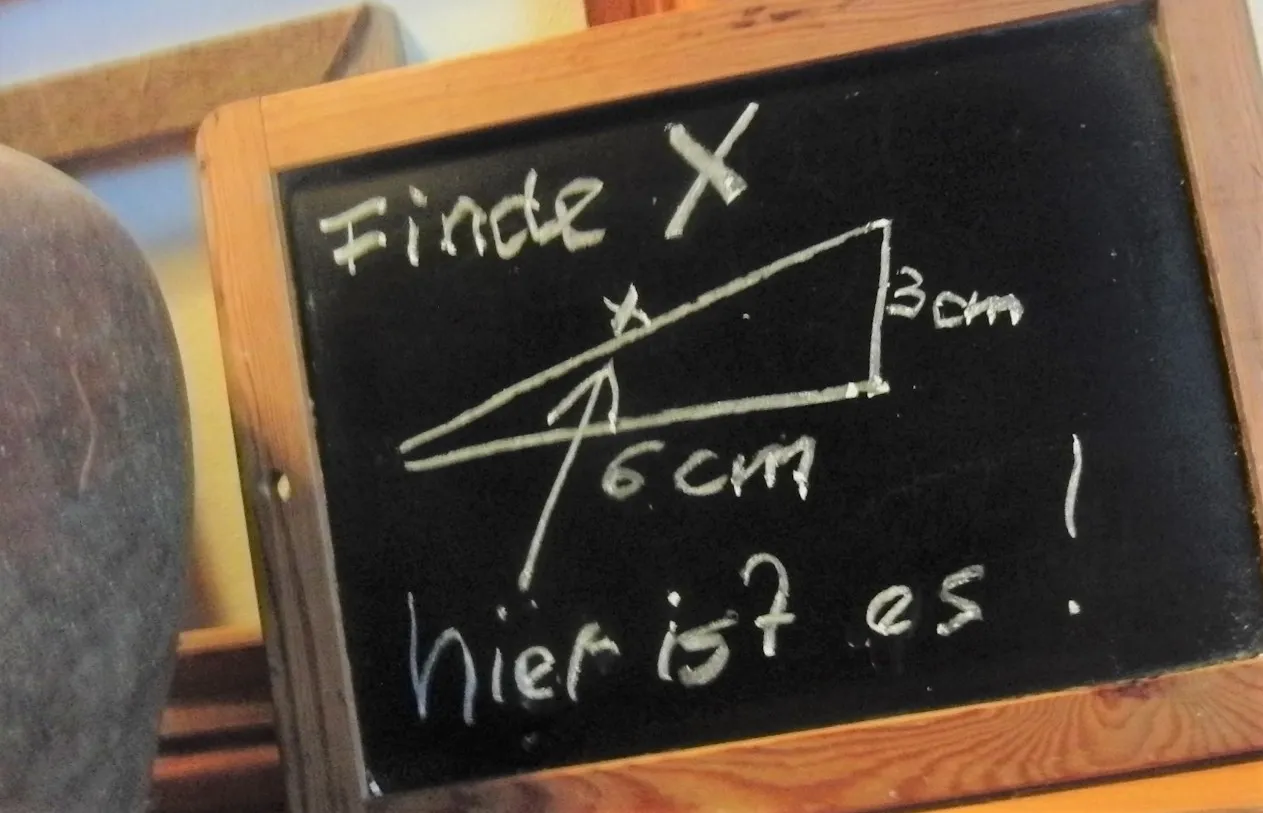 Finde X
x
3 cm
6 cm
hier ist es !